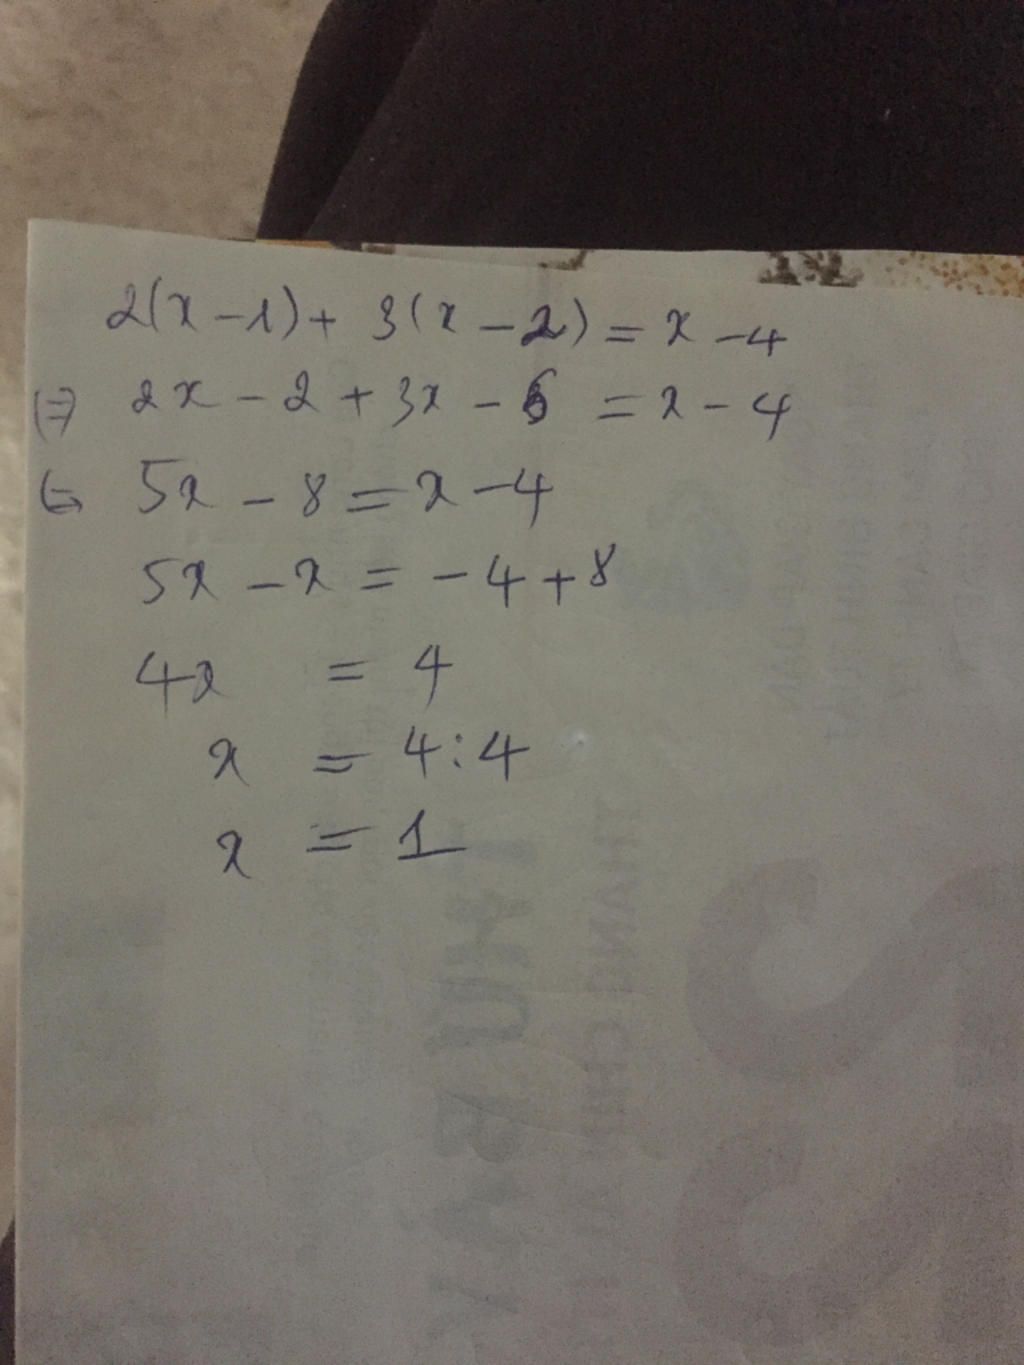 2(x-1)+ 3(x-2)=x-4
(=) 2x-2+3x-6 =x-4
(=) 5x-8=x-4
5x-x=-4+8
4x = 4
x = 4:4
x = 1